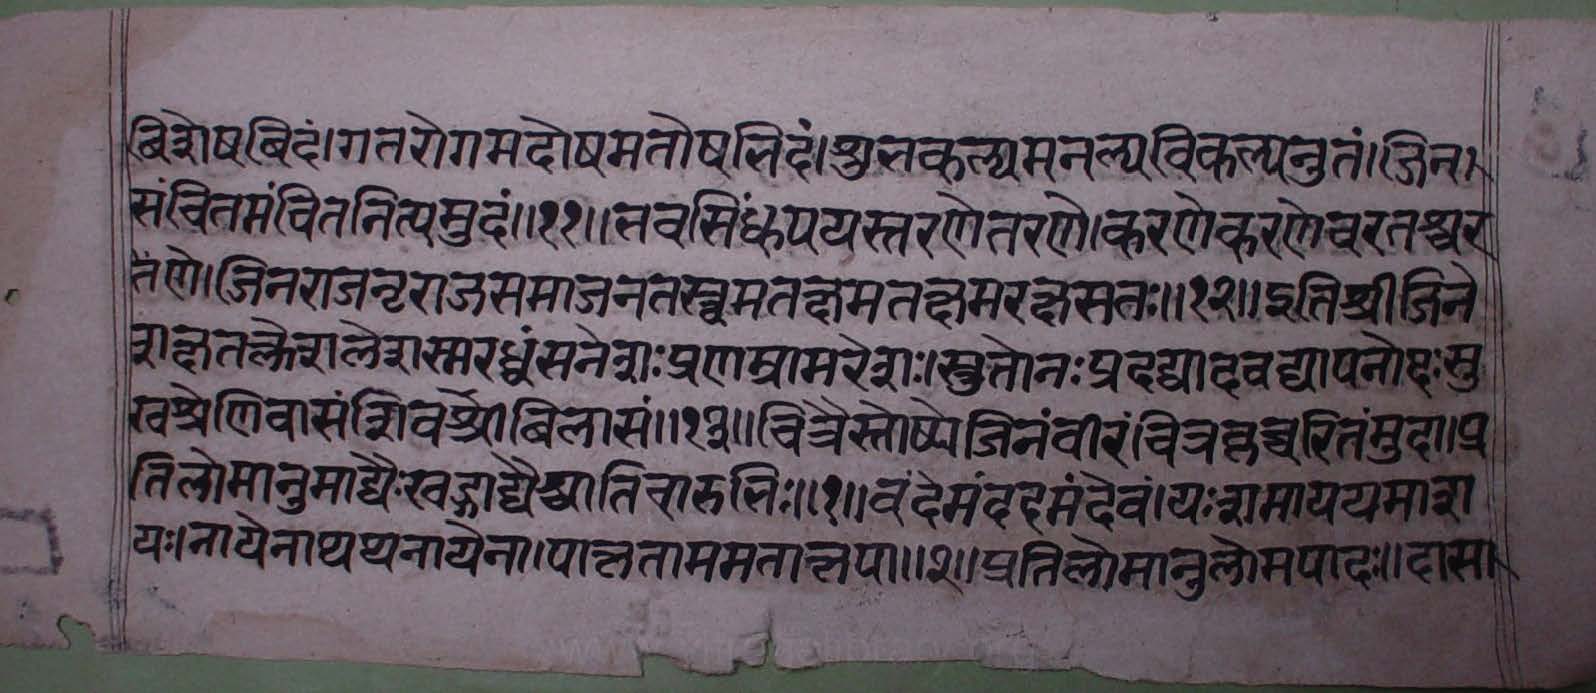 विशेषविदं।गतरोगमदोषमतोषभिदं।श्रुतकल्पमनल्पविकल्पनुतं।जिन।
संचितमंचितनित्यमुदं॥११॥भवसिंधुपयस्तरणेतरणे।करणेकरणेचरतश्चर
तंणे।जिनराजनृराजसमाजनतस्त्वमतक्षमतक्षमरक्षसतः॥१२॥इतिश्रीजिने
प्रणम्रामरेशः।स्तुतोनःप्रदद्यादवद्यापनोदःसु
खश्रेणिवासंशिवश्रीविलासं॥१३॥चित्रैस्तोष्येजिनंवीरं।चित्रकृच्चरितंमुदा।प्र
तिलोमानुमाद्यैःखड्गाद्यैश्चातिचारुभिः॥१॥वंदेमंददमंदेवं।यःशमाययमाश
यः।नायेनाथथनायेना।पालतामममतालपा॥२॥प्रतिलोमानुलोमपादः॥दासा